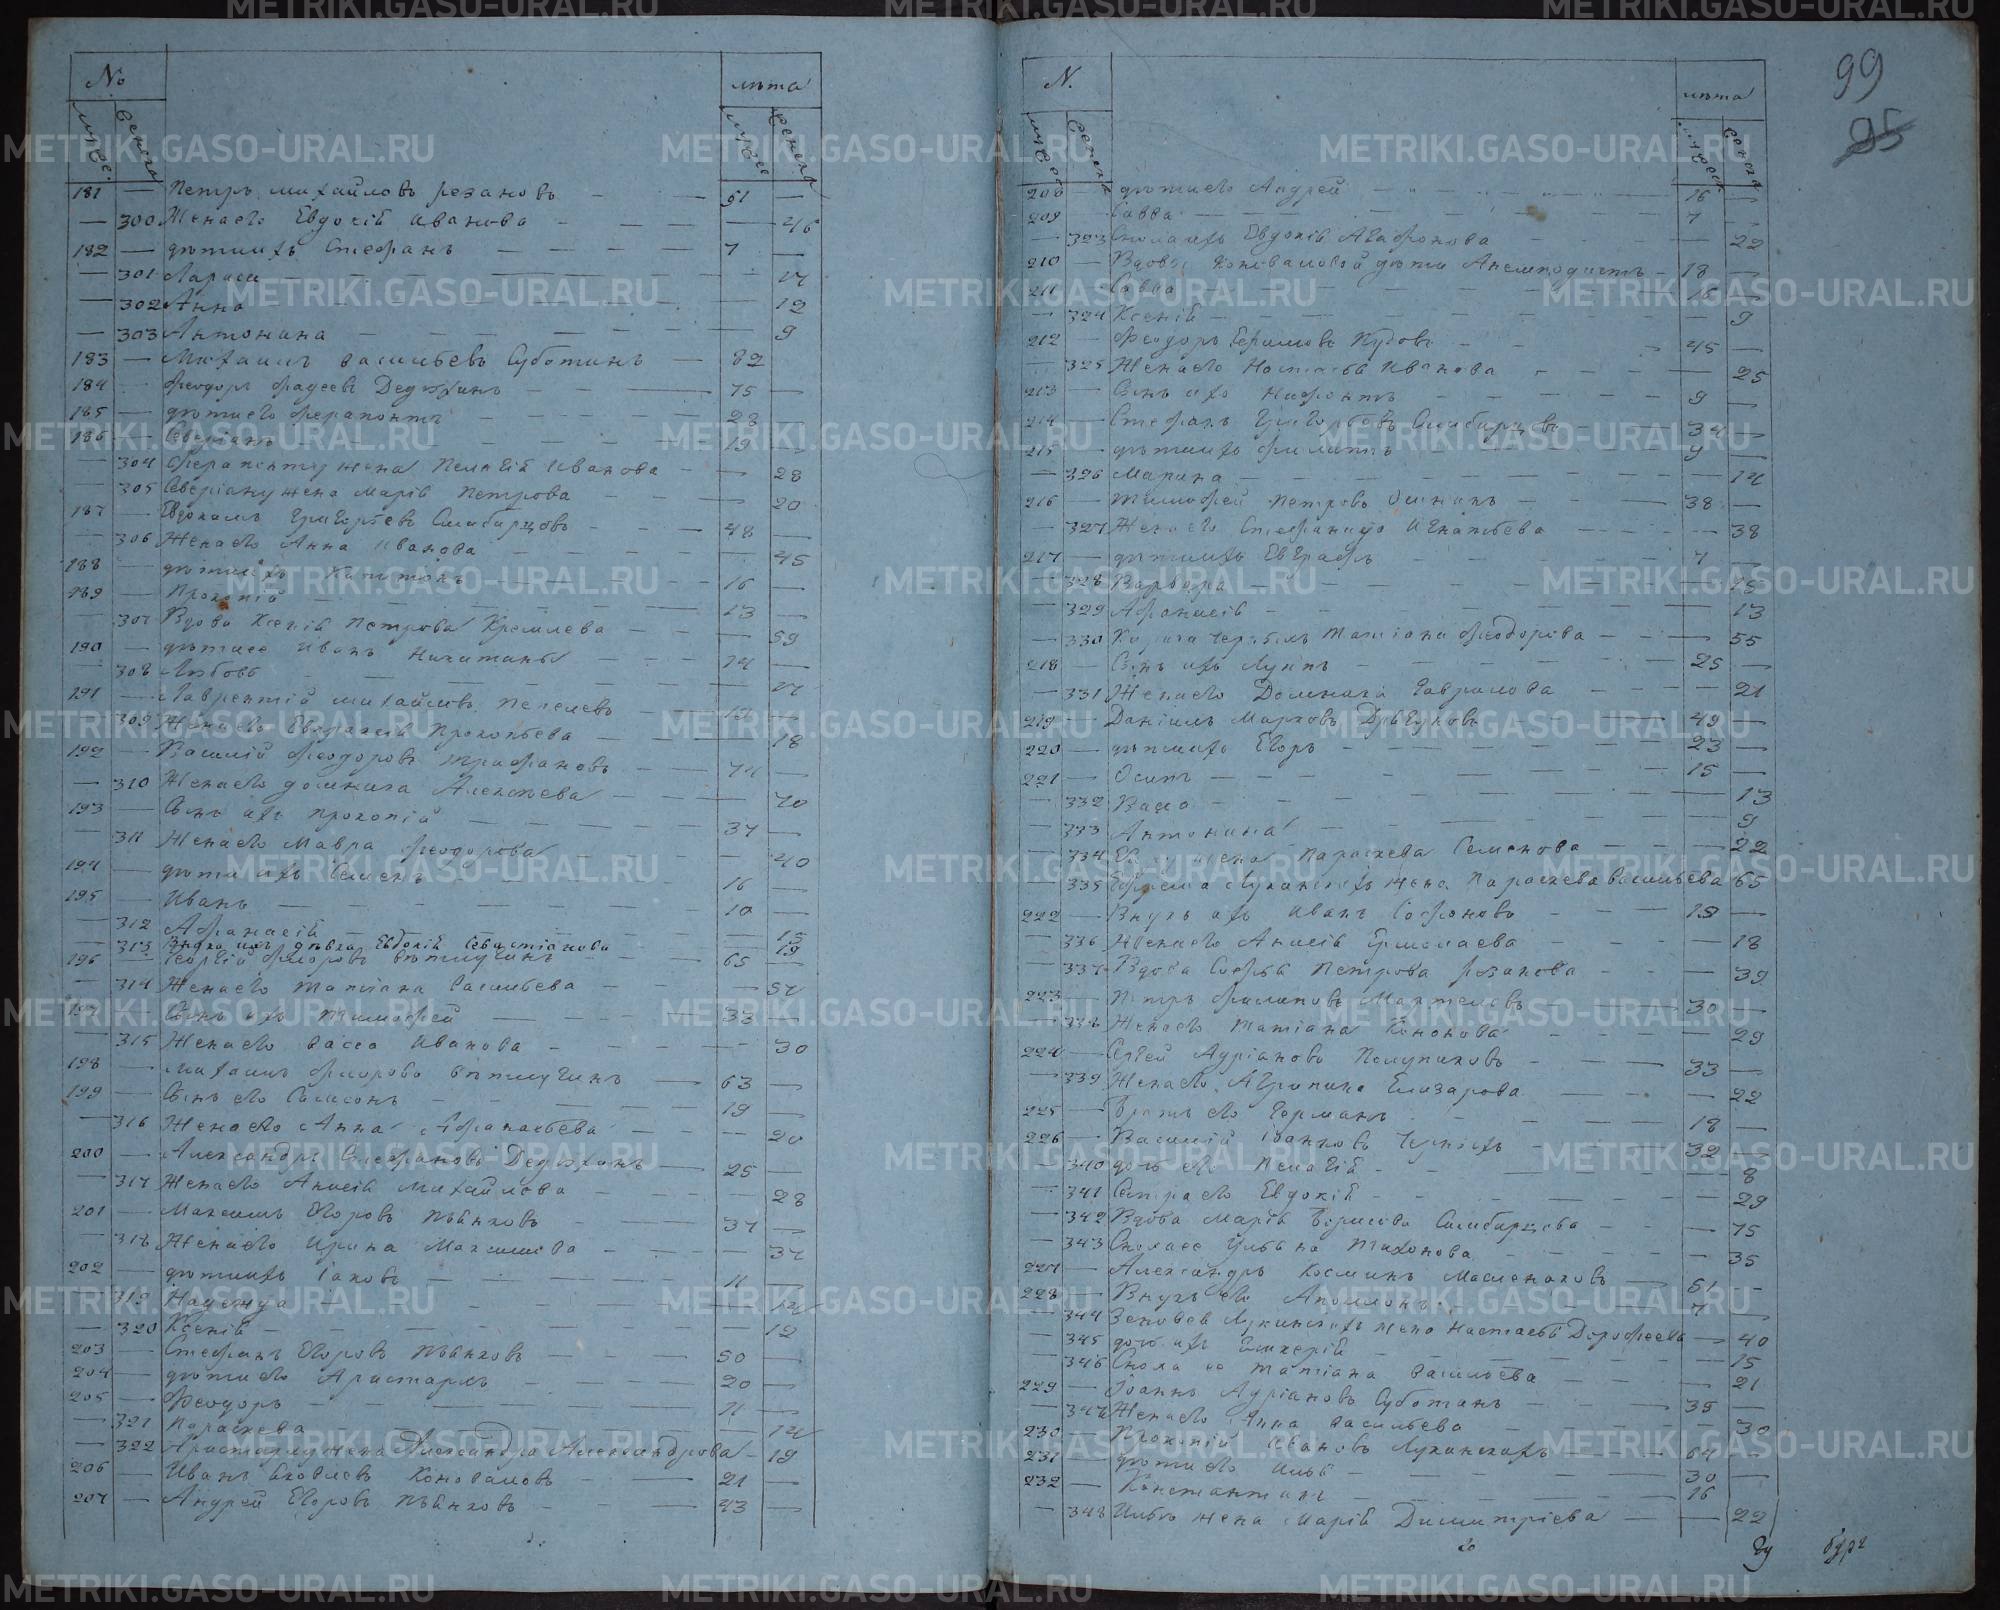 № лѣта
мужес. женска мужес женска
181 — Петръ Михайловъ Резановъ — — 51 —
— 300 Жена его Евдокія Иванова — — — — 46
182 — дѣти ихъ Стефанъ — — — — 7 —
— 301 Лариса — — — — 17
— 302 Анна — — — — 12
— 303 Антонина — — — — 9
183 — Михаилъ Васильевъ Суботинъ — 82
184 — Феодоръ Фадеевъ Дедюхинъ — — 75 —
185 — дѣти его Ферапонтъ — — — 28 —
186 — Северіанъ — — — — 19 —
— 304 Ферапонту жена Пелагія Иванова — — 28
— 305 Северіану жена Марія Петрова — — — 20
187 — Евдокимъ Григорьевъ Симбирцовъ — — 48 —
— 306 Жена его Анна Иванова — — — 45
188 — дѣти ихъ Капитонъ — — — 16 —
189 — Прокопій — — — — 13 —
— 307 Вдова Ксенія Петрова Кремлева — — — 59
190 — дѣти ее Иванъ Никитинъ — — 14 —
— 308 Любовь — — — — 17
191 — Лаврентій Михайловъ Пепелевъ — — 19 —
— 309 Жена его Евпраксія Прокопьева — — — 18
192 — Василій Феодоровъ Трифановъ — — 74 —
— 310 Жена его Домника Алексѣева — — — 70
193 — Сынъ ихъ Прокопій — — — 37 —
— 311 Жена его Мавра Феодорова — — — 40
194 — дѣти ихъ Семенъ — — — 16 —
195 — Иванъ — — — — 10 —
— 312 Афанасія — — — — 15
— 313 дѣвка Евдокія Севастіанова 19
196 — Георгій Флоровъ Вѣтлугинъ — — 65 —
— 314 Жена его Татіана Васильева — — — 57
197 — Сынъ ихъ Тимофей — — — 33 —
— 315 Жена его Васса Иванова — — — — 30
198 — Михаилъ Флоровъ Вѣтлугинъ — 63 —
199 — Сынъ его Самсонъ — — — 19 —
— 316 Жена его Анна Афанасьева — — — 20
200 — Александръ Стефановъ Дедюхинъ — 25 —
— 317 Жена его Анисія Михайлова — — — 28
201 — Максимъ Егоровъ Пьянковъ — — 37 —
— 318 Жена его Ирина Максимова — — — 37
202 — дѣти ихъ Іаковъ — — — 11 —
— 319 Надежда — — — — 14
— 320 Ксенія — — — — 12
203 — Стефанъ Егоровъ Пьянковъ — — 50 —
204 — дѣти его Аристархъ — — — 20 —
205 — Феодоръ — — — — 11 —
— 321 Параскева — — — — 14
— 322 Аристарху жена Александра Александрова — 19
206 — Иванъ Яковлевъ Коноваловъ — — 21 —
207 — Андрей Егоровъ Пьянковъ — — 43 —
99
95
N. лѣта
мужес женска мужес женска
208 — дѣти его Андрей — — — 16 —
209 — Савва — — — — 7 —
— 323 Сноха ихъ Евдокія Агафонова — — — 22
210 — Вдовы Коноваловой дѣти Анемподистъ — 18 —
211 — Савва — — — — 16 —
— 324 Ксенія — — — — 9
212 — Феодоръ Ефимовъ Зубовъ — — 45 —
— 325 Жена его Настасья Иванова — — — 25
213 — Сынъ ихъ Нифонтъ — — — 9 —
214 — Стефанъ Григорьевъ Симбирцовъ — 34 —
215 — дѣти ихъ Филиппъ — — — 9 —
— 326 Марина — — — — 14
216 — Тимофей Петровъ — — 38 —
— 327 Жена его Стефанида Игнатьева — — — 38
217 — дѣти ихъ Евграфъ — — — 7 —
— 328 Варвара — — — — 15
— 329 Афанасія — — — — 13
— 330 Татіана Феодорова — — — 55
218 — Сынъ ихъ Луппъ — — — 25 —
— 331 Жена его Домника Гаврилова — — — 21
219 — Даніилъ Марковъ — — 49 —
220 — дѣти ихъ Егоръ — — — 23 —
221 — Осипъ — — — — 15 —
— 332 Васса — — — — 13
— 333 Антонина — — — — 9
— 334 жена Параскева Семенова — — — 22
— 335 Ефрема Луканскихъ жена Параскева Васильева 65
222 — Внукъ ихъ Иванъ Софоновъ — — 19 —
— 336 Жена его Анисія Ермолаева — — — 18
— 337 Вдова Софья Петрова Резанова — — — 39
223 — Петръ Филиповъ Мартелевъ — — 30 —
— 338 Жена его Татіана Кононова — — — 29
224 — Сергей Адріановъ Полупановъ — — 33 —
— 339 Жена его Агрипина Елизарова — — — 22
225 — Братъ его Германъ — — — 18 —
226 — Василій Іоанновъ Черныхъ — — 32 —
— 340 дочь его Пелагія — — — 8
— 341 Сестра его Евдокія — — — 29
— 342 Вдова Марія Борисова Симбирцова — — — 75
— 343 Сноха ее Ульяна Тихонова — — — 35
227 — Александръ Косминъ Масленковъ — 61 —
228 — Внукъ его Аполлонъ — — 7 —
— 344 Зеновея Луканскихъ жена Настасья Дорофеева — 40
— 345 дочь ихъ Гликерія — — — 15
— 346 Сноха ее Татіана Васильева — — — 21
229 — Іоаннъ Адріановъ Суботинъ — — 35 —
— 347 Жена его Анна Васильева — — — 30
230 — Прокопій Ивановъ Луканскихъ — — 64 —
231 — дѣти его Илья — — — 30 —
232 — Константинъ — — — — 16 —
— 348 Ильѣ жена Марія Димитріева — — 22